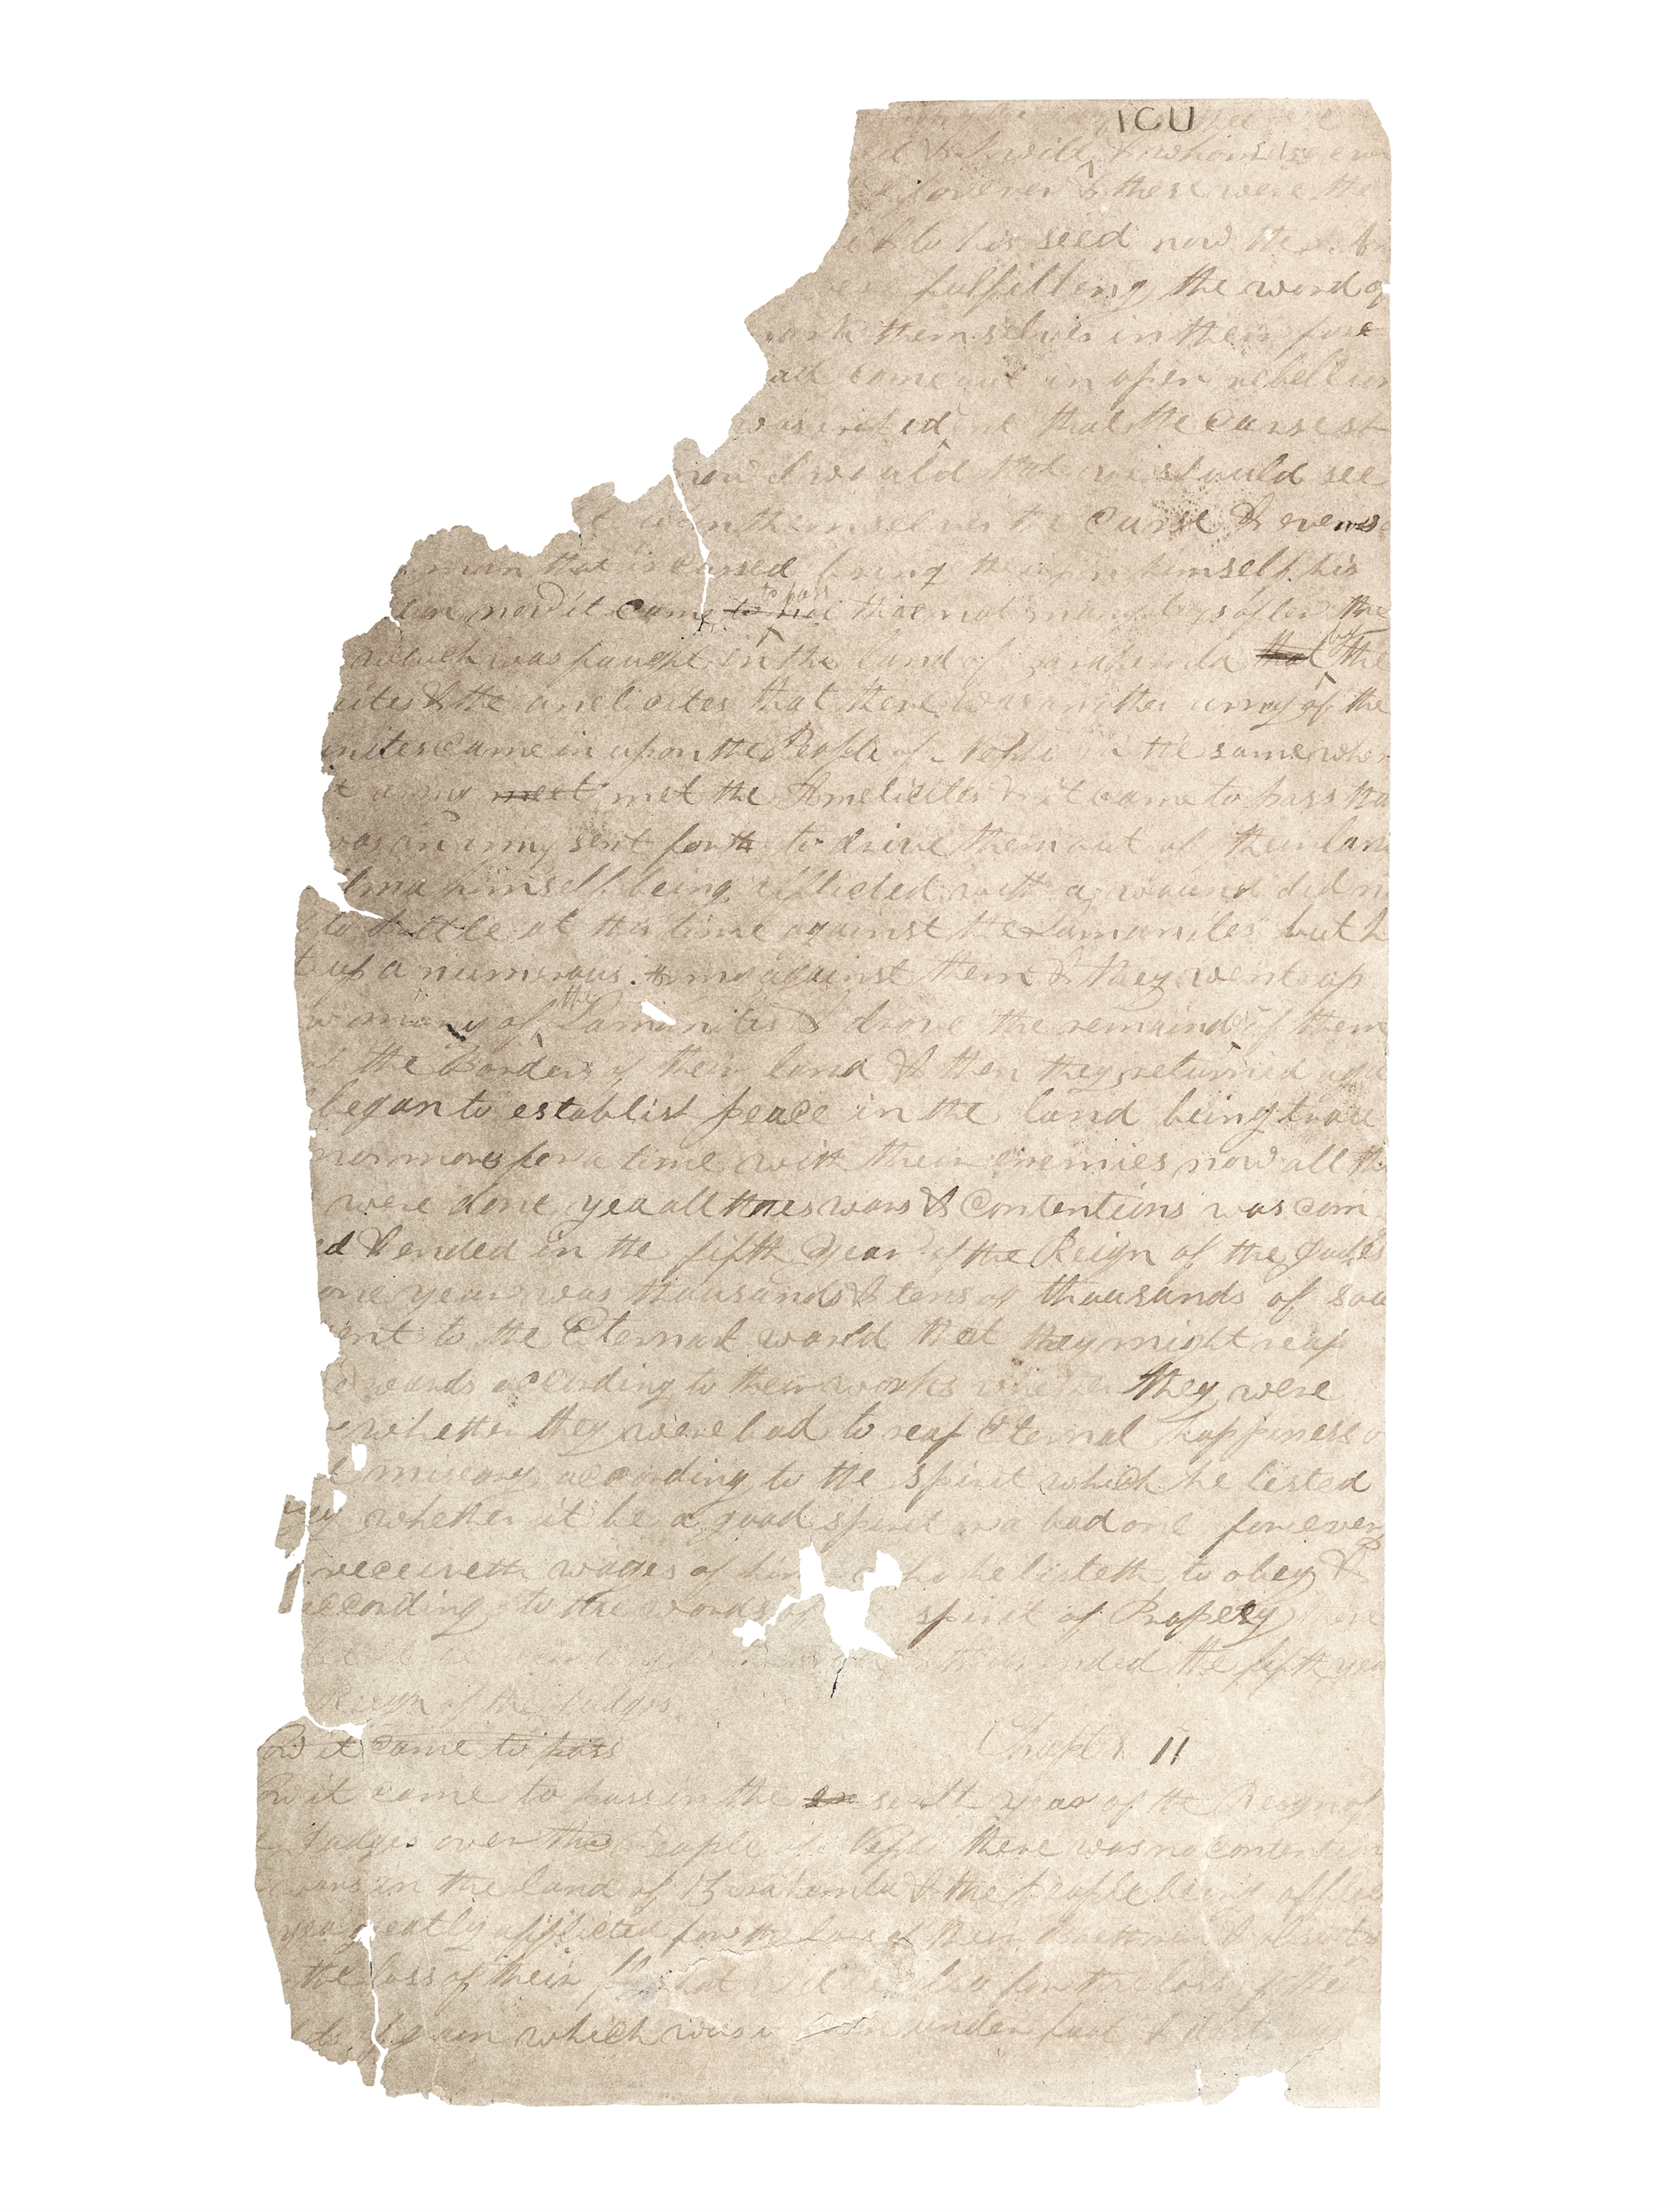 ICU
& I will & whomsoever
forever & these were the
to his seed now the
fulfilling the word of
themselves in their fore
come out in open rebellion
was expedient that the curse sh
now I would that ye should see
upon themselves the curse & even so
man that is cursed bring upon himself his
now it came to pass that not many days after the
which was faught in the land of Zarahemla by the
ites & the amlicites that there was another army of the
nites came in upon the People of Nephi in the same wher
t army meet met the Amlicites & it came to pass tha
was an army sent forth to drive them out of their lan
lma himself being afflicted with a wound did n
to battle at this time against the Lamanites but h
t up a numerous army against them & they went up
w many of the Lamanites & drove the remainder of them
of the Borders of their land & then they returned aga
began to establish peace in the land being trou
no more for a time with their enemies now all th
were done yea all thees wars & Contentions was com
d & ended in the fifth year of the Reign of the Judges
one year was thousands & tens of thousands of sou
ent to the Eternal world that they might reap
ewards according to their works whether they were
whether they were bad to reap Eternal happiness o
l miseary according to the spirit which he listed
bey whether it be a good spirit or a bad one for every
receiveth wages of him who he listeth to obey &
according to the words of spirit of Propesy
thus ended the fifth yea
Reign of the Judges
ow it came to pass Chapter 11
ow it came to pass in the sixth year of the Reign of
Judges over the People of Nephi there was no contention
wars in the land of Zarahemla & the people being afflic
yea greatly afflicted for the loss of their Brethren &
the loss of their flocks also for the loss of their
of grain which was under foot &